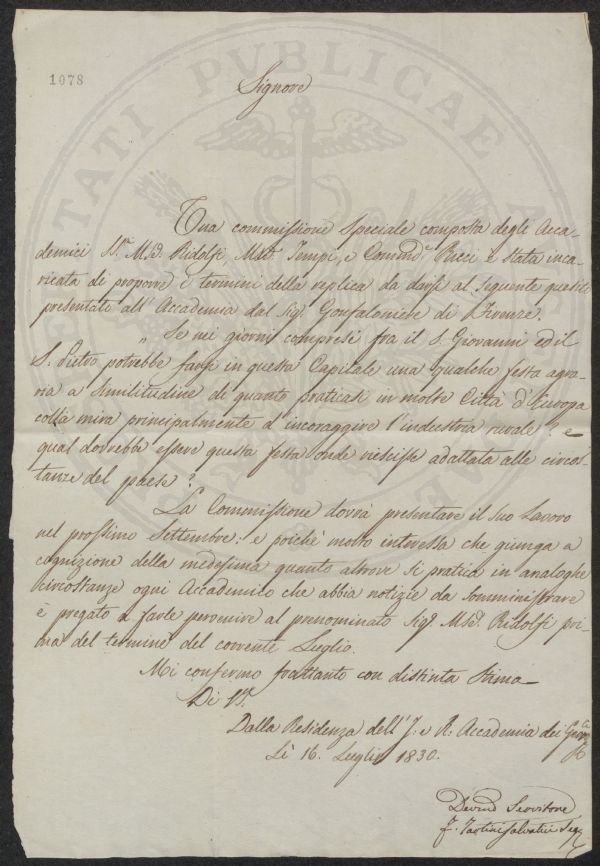 1078
Signore
Una commissione Speciale composta degli Acca-
demici SS.ri M.se Ridolfi, M.se Tempi, e Comend.e Ricci è stata inca-
ricata di proporre i termini della replica da darsi al seguente quesito
presentato all'Accademia dal Sig.r Gonfaloniere di Firenze.
" Se nei giorni compresi fra il S. Giovanni ed il
S. Pietro potrebbe farsi in questa Capitale una qualche festa agra-
ria a similitudine di quanto praticasi in molte Città d'Europa
colla mira principalmente d'incoraggire l'industria rurale? e
qual dovrebbe essere questa festa onde riescisse adattata alle circos-
tanze del paese?
La Commissione dovrà presentare il suo Lavoro
nel prossimo Settembre: e poichè molto interessa che giunga a
cognizione della medesima quanto altrove si pratica in analoghe
circostanze ogni Accademico che abbia notizie da somministrare
è pregato a farle pervenire al prenominato Sig.r M.se Ridolfi pri-
ma del termine del corrente Luglio.
Mi confermo frattanto con distinta stima
Di VS.
Dalla Residenza dell'I. e R. Accademia dei Georg.li
Lì 16. Luglio 1830.
Dev.mo Servitore
F. Tartini Salvatici Seg.
PUBLICAE